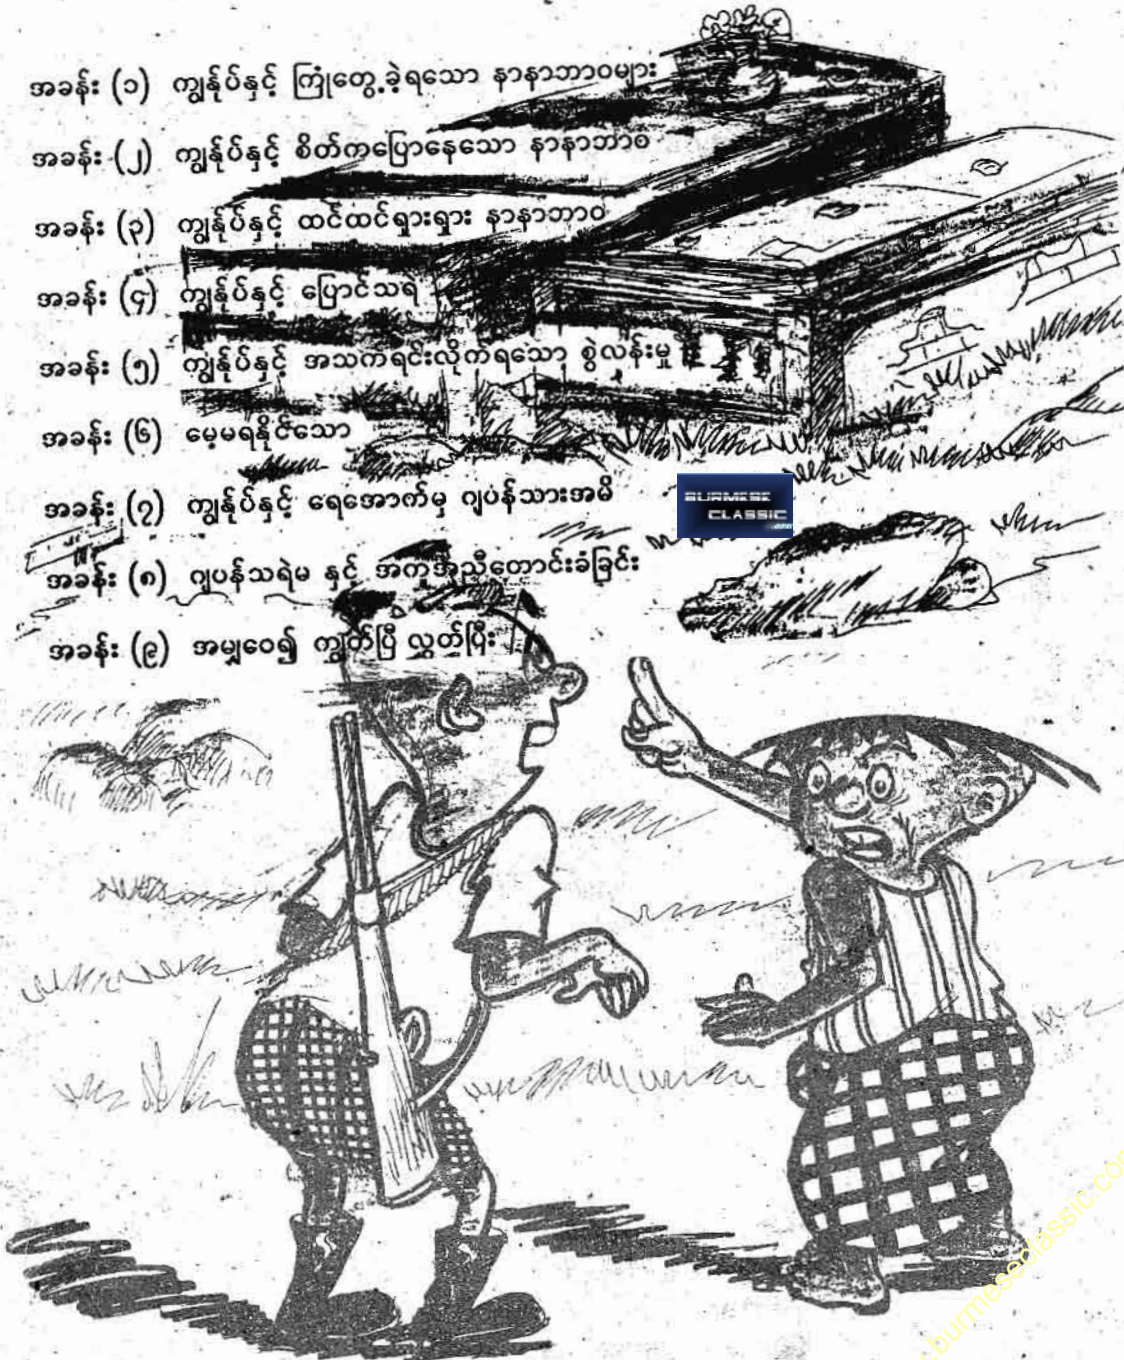 အခန်း (၁) ကျွန်ုပ်နှင့် ကြုံတွေ့ခဲ့ရသော နာနာဘာဝများ
အခန်း (၂) ကျွန်ုပ်နှင့် စိတ်ကပြောနေသော နာနာဘာဝ
အခန်း (၃) ကျွန်ုပ်နှင့် ထင်ထင်ရှားရှား နာနာဘာဝ
အခန်း (၄) ကျွန်ုပ်နှင့် ပြောင်သရဲ
အခန်း (၅) ကျွန်ုပ်နှင့် အသက်ရင်းလိုက်ရသော စွဲလန်းမှု
အခန်း (၆) မေ့မရနိုင်သော
အခန်း (၇) ကျွန်ုပ်နှင့် ရေအောက်မှ ဂျပန်သားအမိ
BURMESE
CLASSIC
.com
အခန်း (၈) ဂျပန်သရဲမ နှင့် အကူအညီတောင်းခံခြင်း
အခန်း (၉) အမျှဝေ၍ ကျွတ်ပြီ လွတ်ပြီး
.burmeseclassic.com